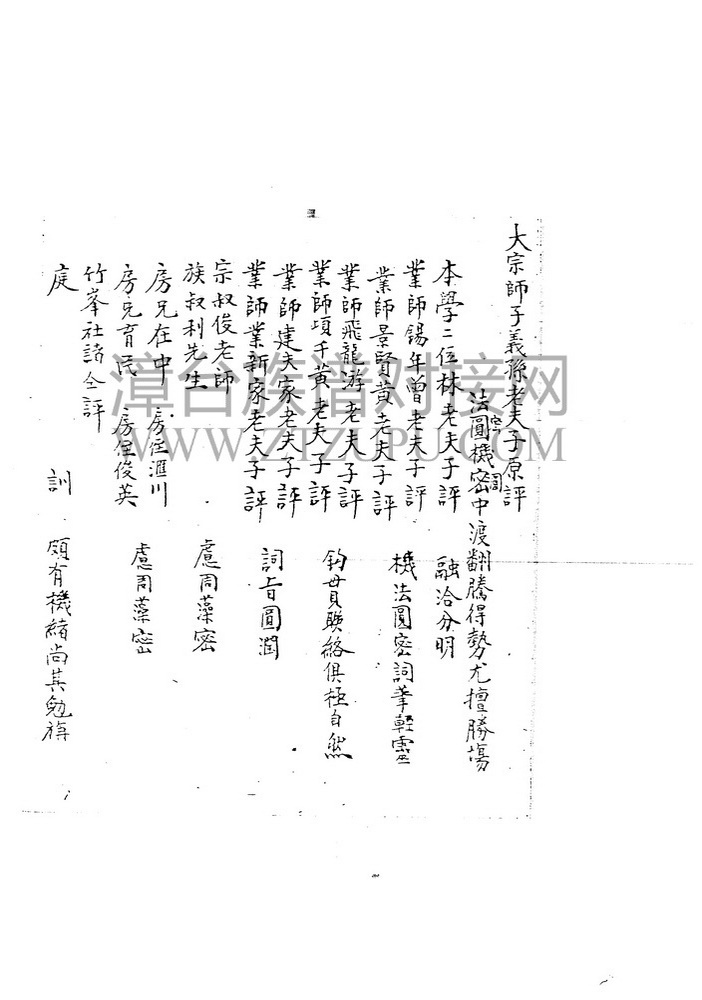 大宗師子義孫老夫子原評
法圓機密中渡翻騰得勢尤擅勝場
宻周
本學二位林老夫子評 融洽分明
業師錫年曾老夫子評
業師景賢黃老夫子評 機法圓密詞筆輕靈
業師飛龍游老夫子評
業師項千黃老夫子評 鈎貫聯絡俱極自然
業師建夫家老夫子評
業師業新家老夫子評 詞旨圓潤
宗叔俊老師
族叔利先生 慮周藻密
房兄在中 房侄滙川
房兄育民 房侄俊英 慮周藻密
竹峯社諸仝評
庭 訓 頗有機緒尚其勉旃
漳台族谱对接网
WWW.ZTZUPU.COM